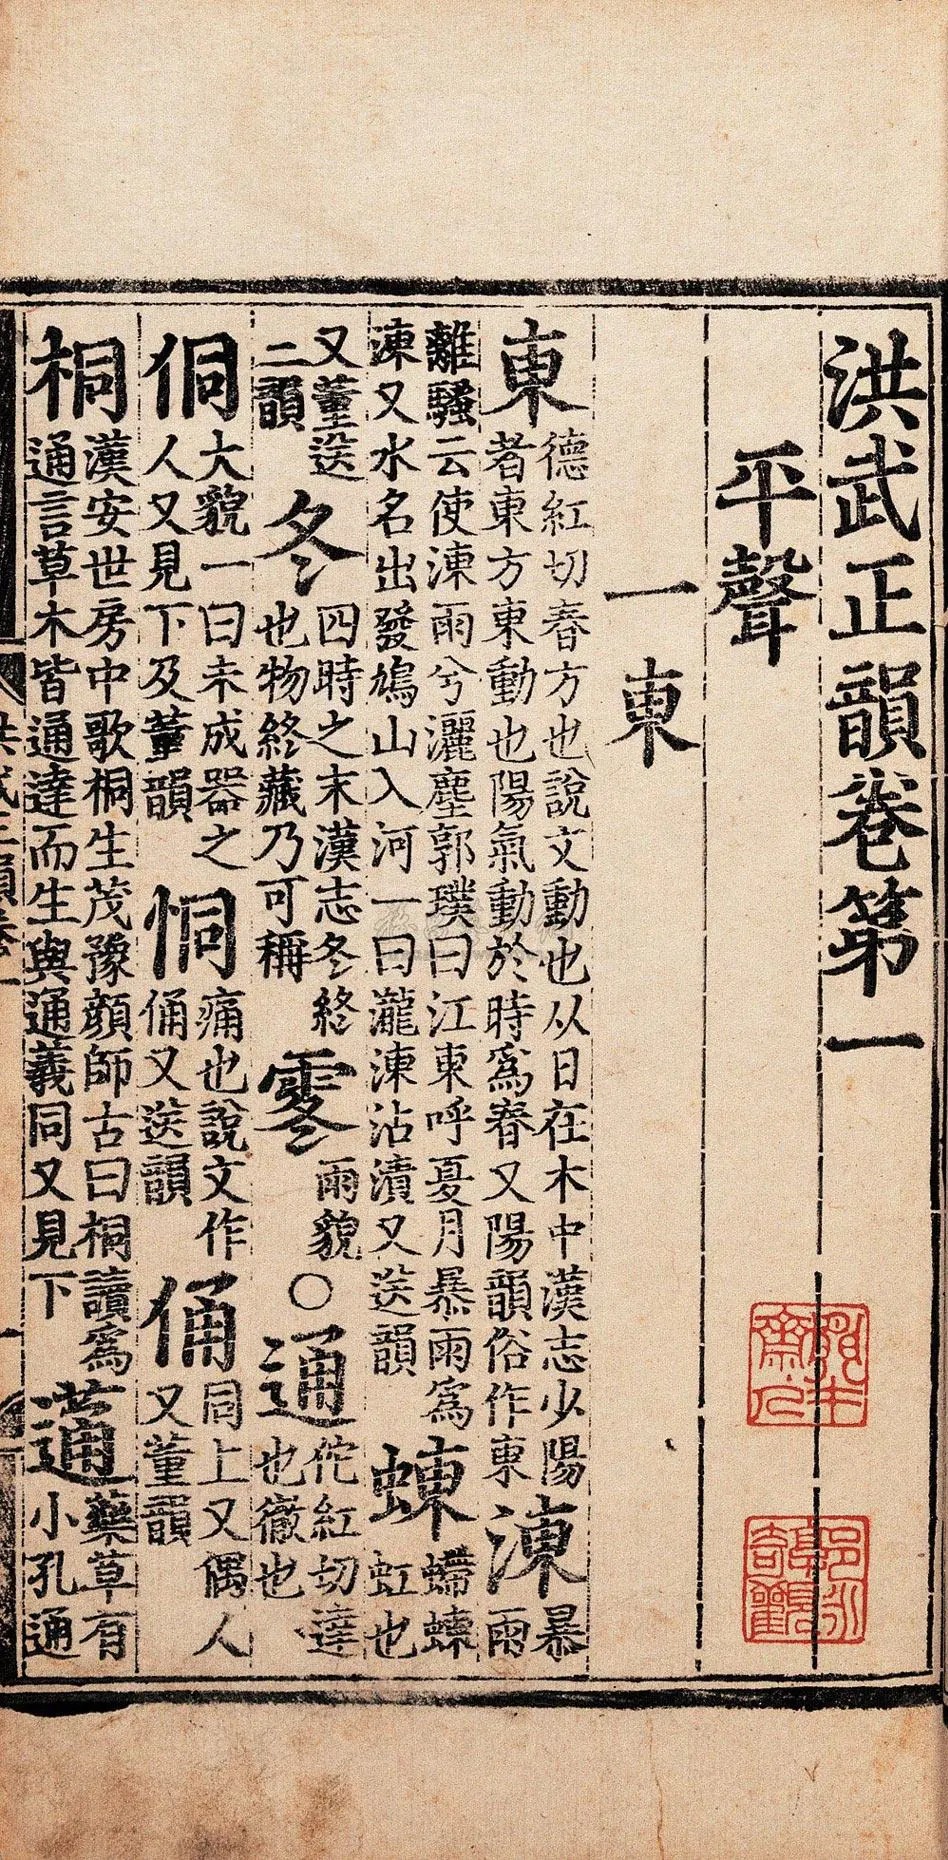 洪武正韻卷第一
平聲
一東
東德紅切春方也說文動也从日在木中漢志少陽者東方東動也陽氣動於時爲春又陽韻俗作東涷暴雨
離騷云使涷雨兮灑塵郭璞曰江東呼夏月暴雨爲涷又水名出發鳩山入河一曰瀧涷沾漬又送韻蝀螮蝀虹也
又董送二韻冬四時之末漢志冬終也物終藏乃可稱雨貌○通佗紅切達也徹也
侗大貌一曰未成器之人又見下及董韻恫痛也說文作俑又送韻俑同上又偶人又董韻
桐漢安世房中歌桐生茂豫顏師古曰桐讀爲通言草木皆通達而生與通義同又見下蓪藥草有小孔通